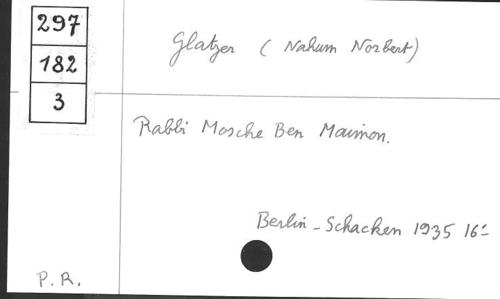 297
182
3
Glatzer ( Nahum Norbert)
Rabbi Mosche Ben Maimon.
Berlin - Schacken 1935 16º
P. R.